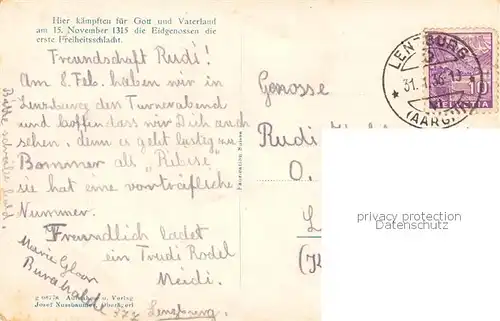 Hier kämpften für Gott und Vaterland
am 15. November 1315 die Eidgenossen die
erste Freiheitsschlacht.
Freundschaft Rudi!
Am 8. Feb. haben wir in
Lenzburg den Turnerabend
und hoffen dass wir Dich auch
sehen, denn es geht lustig zu
Bommer als "Rebise"
sie hat eine vortrefliche
Nummer.
Freundlich ladet
ein Trudi Rodel
Meidi.
Lenzburg
Marie Gloor
Burghalde
Bitte schreibe bald.
Genosse
Rudi
O.
L
LENZBURG
31. 1. 36-19
(AARGAU)
10
HELVETIA
privacy protection
Datenschutz
g 08778 Aufnahme u. Verlag
Josef Nussbaumer, Oberägeri